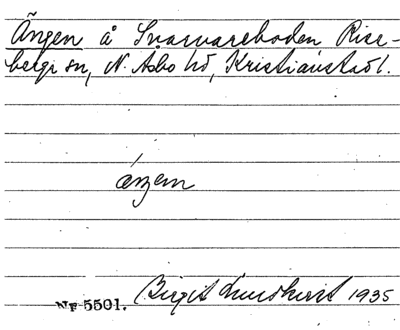 Ängen å Svarvareboden Rise-
berga sn, N. Åsbo hd, Kristianstad l.
áŋen
NF 5501. Birgit Lundkvist 1935